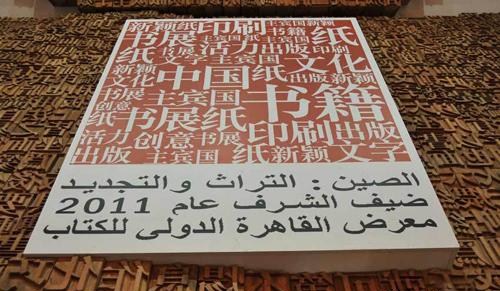 新颖纸印刷书籍主宾国新颖
纸书展活力出版印刷
文字主宾国文化
新颖
文化中国纸出版新颖
书展主宾国书籍
创意书展纸印刷出版
活力创意书展
出版主宾国纸新颖文字
الصين : التراث والتجديد
ضيف الشرف عام 2011
معرض القاهرة الدولى للكتاب